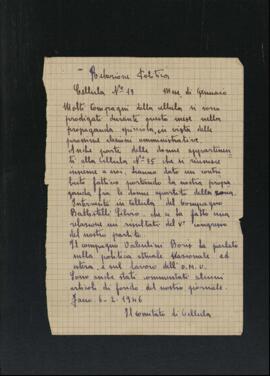 Relazione Politica
Cellula N° 19 Mese di Gennaio
Molti Compagni della cellula si sono
prodigati durante questo mese nella
propaganda spicciola, in vista delle
prossime elezioni amministrative.
Anche parte delle donne appartenenti
alla Cellula N° 25 che si riunisce
insieme a noi, hanno dato un contri
buto fattivo portando la nostra propa
ganda fra le donne sportate della zona.
Intervento in cellula del Compagno
Battistelli Silvio che ci ha fatto una
relazione sui risultati del V° congresso
del nostro partito.
Il compagno Valentini Boris ha parlato
sulla politica attuale Nazionale ed
estera, e sul lavoro dell'O.N.U.
Sono anche stati commentati alcuni
articoli di fondo del nostro giornale.
Fano 6-2-1946
Il Comitato di Cellula